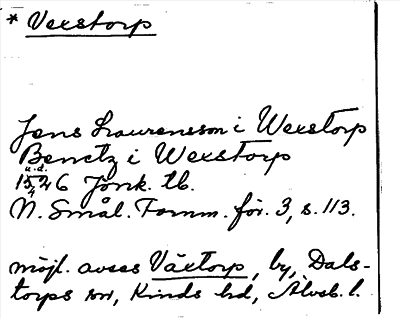 * Vexstorp
Jens Laurensson i Wexstorp
Benctz i Wexstorp
u.d.
1526 Jönk. tb.
4
N. Smål. Fornm. för. 3, s. 113.
möjl. avses Växtorp, by, Dals-
torps sn, Kinds hd, Älvsb. l.